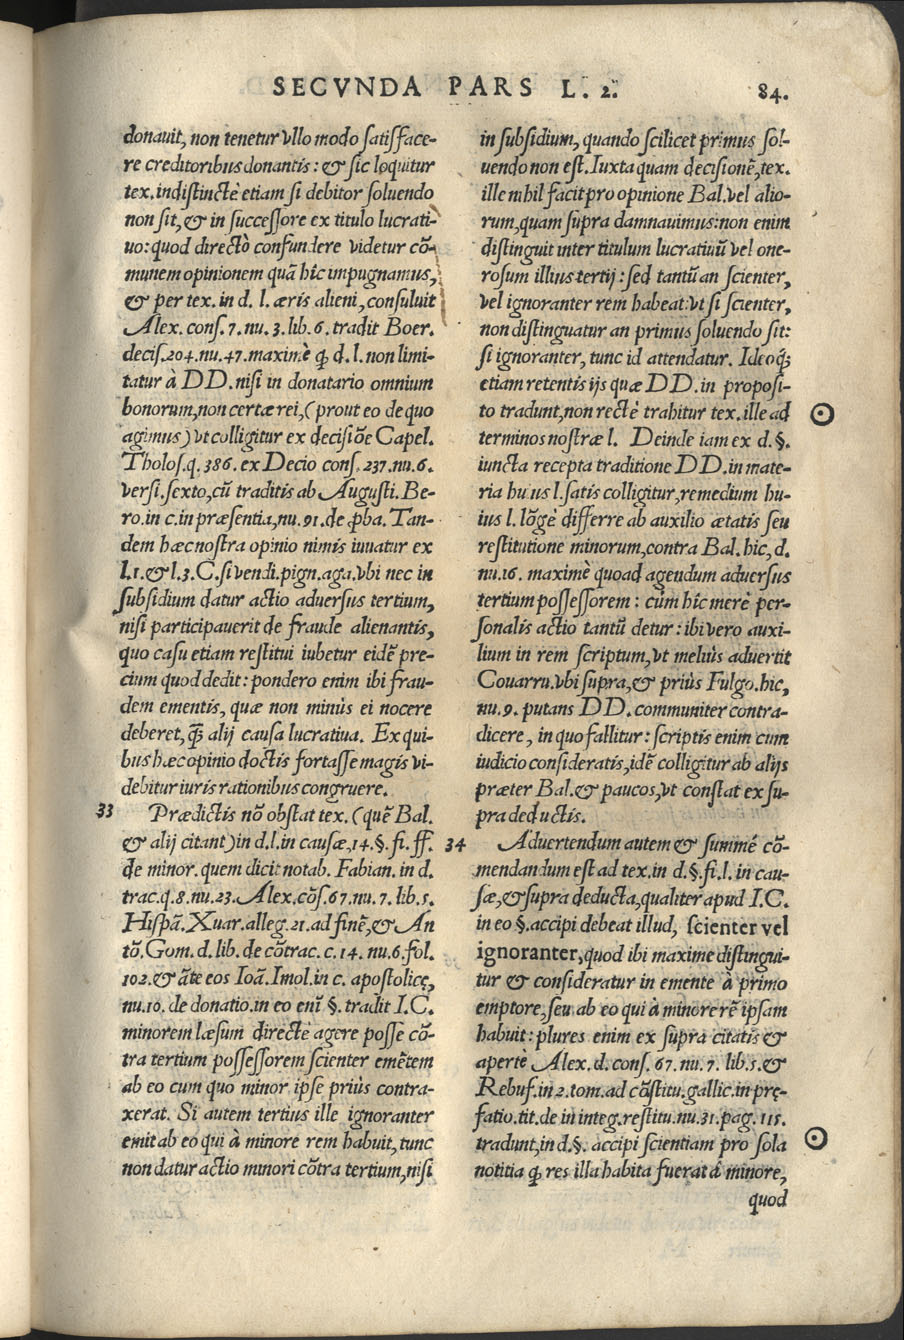 SECVNDA PARS L. 2. 84.
donauit, non tenetur vllo modo satisface-
re creditoribus donantis: & sic loquitur
tex. indistinctè etiam si debitor soluendo
non sit, & in successore ex titulo lucrati-
uo: quod directò confundere videtur cō-
munem opinionem quā hic impugnamus,
& per tex. in d. l. æris alieni, consuluit
Alex. cons. 7. nu. 3. lib. 6. tradit Boer.
decis. 204. nu. 47. maximè ꝙ d. l. non limi-
tatur à DD. nisi in donatario omnium
bonorum, non certæ rei, (prout eo de quo
agimus) vt colligitur ex decisiōe Capel.
Tholos. q. 386. ex Decio cons. 237. nu. 6.
versi. sexto, cū traditis ab Augusti. Be-
ro. in c. in præsentia, nu. 91. de ꝓba. Tan-
dem hæc nostra opinio nimis iuuatur ex
l. 1. & l. 3. C. si vendi. pign. aga. vbi nec in
subsidium datur actio aduersus tertium,
nisi participauerit de fraude alienantis,
quo casu etiam restitui iubetur eidē pre-
cium quod dedit: pondero enim ibi frau-
dem ementis, quæ non minùs ei nocere
deberet, ꝗ̄ alij causa lucratiua. Ex qui-
bus hæc opinio doctis fortasse magis vi-
debitur iuris rationibus congruere.
33 Prædictis nō obstat tex. (quē Bal.
& alij citant) in d. l. in causæ, 14. §. fi. ff.
de minor. quem dicit notab. Fabian. in d.
trac. q. 8. nu. 23. Alex. cōs. 67. nu. 7. lib. 5.
Hispā. Xuar. alleg. 21. ad finē, & An
tō. Gom. d. lib. de cōtrac. c. 14. nu. 6. fol.
102. & āte eos Ioā. Imol. in c. apostolicę,
nu. 10. de donatio. in eo enī §. tradit I.C.
minorem læsum directè agere posse cō-
tra tertium possessorem scienter emētem
ab eo cum quo minor ipse priùs contra-
xerat. Si autem tertius ille ignoranter
emit ab eo qui à minore rem habuit, tunc
non datur actio minori cōtra tertium, nisi
in subsidium, quando scilicet primus sol-
uendo non est. Iuxta quam decisionē, tex.
ille nihil facit pro opinione Bal. vel alio-
rum, quam supra damnauimus: non enim
distinguit inter titulum lucratiuū vel one-
rosum illius tertij: sed tantū an scienter,
vel ignoranter rem habeat: vt si scienter,
non distinguatur an primus soluendo sit:
si ignoranter, tunc id attendatur. Ideoq́;
etiam retentis ijs quæ DD. in proposi-
to tradunt, non rectè trahitur tex. ille ad
terminos nostræ l. Deinde iam ex d. §.
iuncta recepta traditione DD. in mate-
ria huius l. satis colligitur, remedium hu-
ius l. lōgè differre ab auxilio ætatis seu
restitutione minorum, contra Bal. hic, d.
nu. 16. maximè quoad agendum aduersus
tertium possessorem: cùm hic merè per-
sonalis actio tantū detur: ibi vero auxi-
lium in rem scriptum, vt meliùs aduertit
Couarru. vbi supra, & priùs Fulgo. hic,
nu. 9. putans DD. communiter contra-
dicere, in quo fallitur: scriptis enim cum
iudicio consideratis, idē colligitur ab alijs
præter Bal. & paucos, vt constat ex su-
pra deductis.
34 Aduertendum autem & summé cō-
mendandum est ad tex. in d. §. fi. l. in cau-
sæ, & supra deducta, qualiter apud I.C.
in eo §. accipi debeat illud, scienter vel
ignoranter, quod ibi maxime distingui-
tur & consideratur in emente à primo
emptore, seu ab eo qui à minore rē ipsam
habuit: plures enim ex supra citatis &
apertè Alex. d. cons. 67. nu. 7. lib. 5. &
Rebuf. in 2. tom. ad cōstitu. gallic. in prę-
fatio. tit. de in integ. restitu. nu. 31. pag. 115.
tradunt, in d. §. accipi scientiam pro sola
notitia ꝙ res illa habita fuerat á minore,
quod